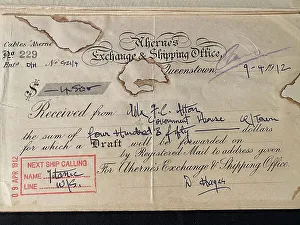 Cables: Aherne
Aherne's
No 229
Exchange & Shipping Office,
Queenstown, 9-4-1912
$ 450.00
Received from Mr F.C.
Government House
the sum of four Hundred & fifty dollars
for which a Draft will be forwarded on
by Registered Mail to address given
For Aherne's Exchange & Shipping Office.
09 APR 1912
NEXT SHIP CALLING
NAME Titanic
LINE W/S.